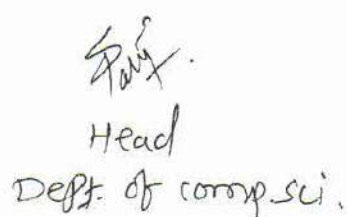 Head
Dept. of comp.sci.